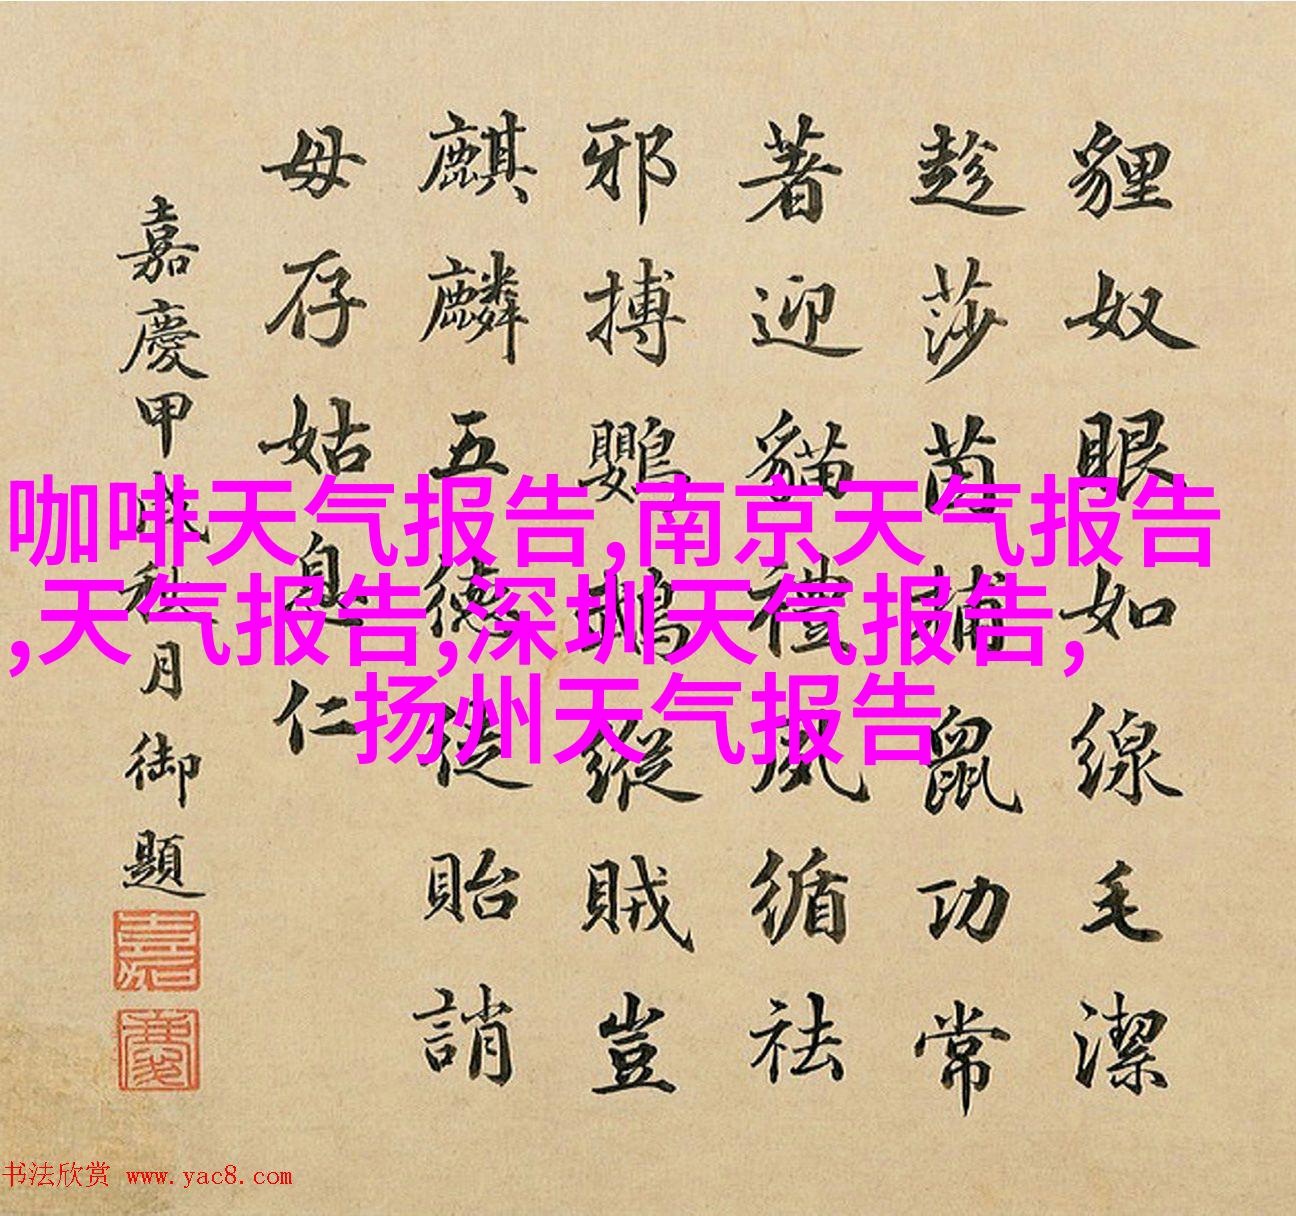 貍奴眼如線毛潔
趁莎茵捕鼠功常
著迎貓禮風循祛
邪搏鸚鵡縱賊豈
麒麟五德從貽誚
毋存姑息仁
嘉慶甲戌秋月御題
嘉
慶
咖啡天气报告,南京天气报告
,天气报告,深圳天气报告,
扬州天气报告
书法欣赏 www.yac8.com